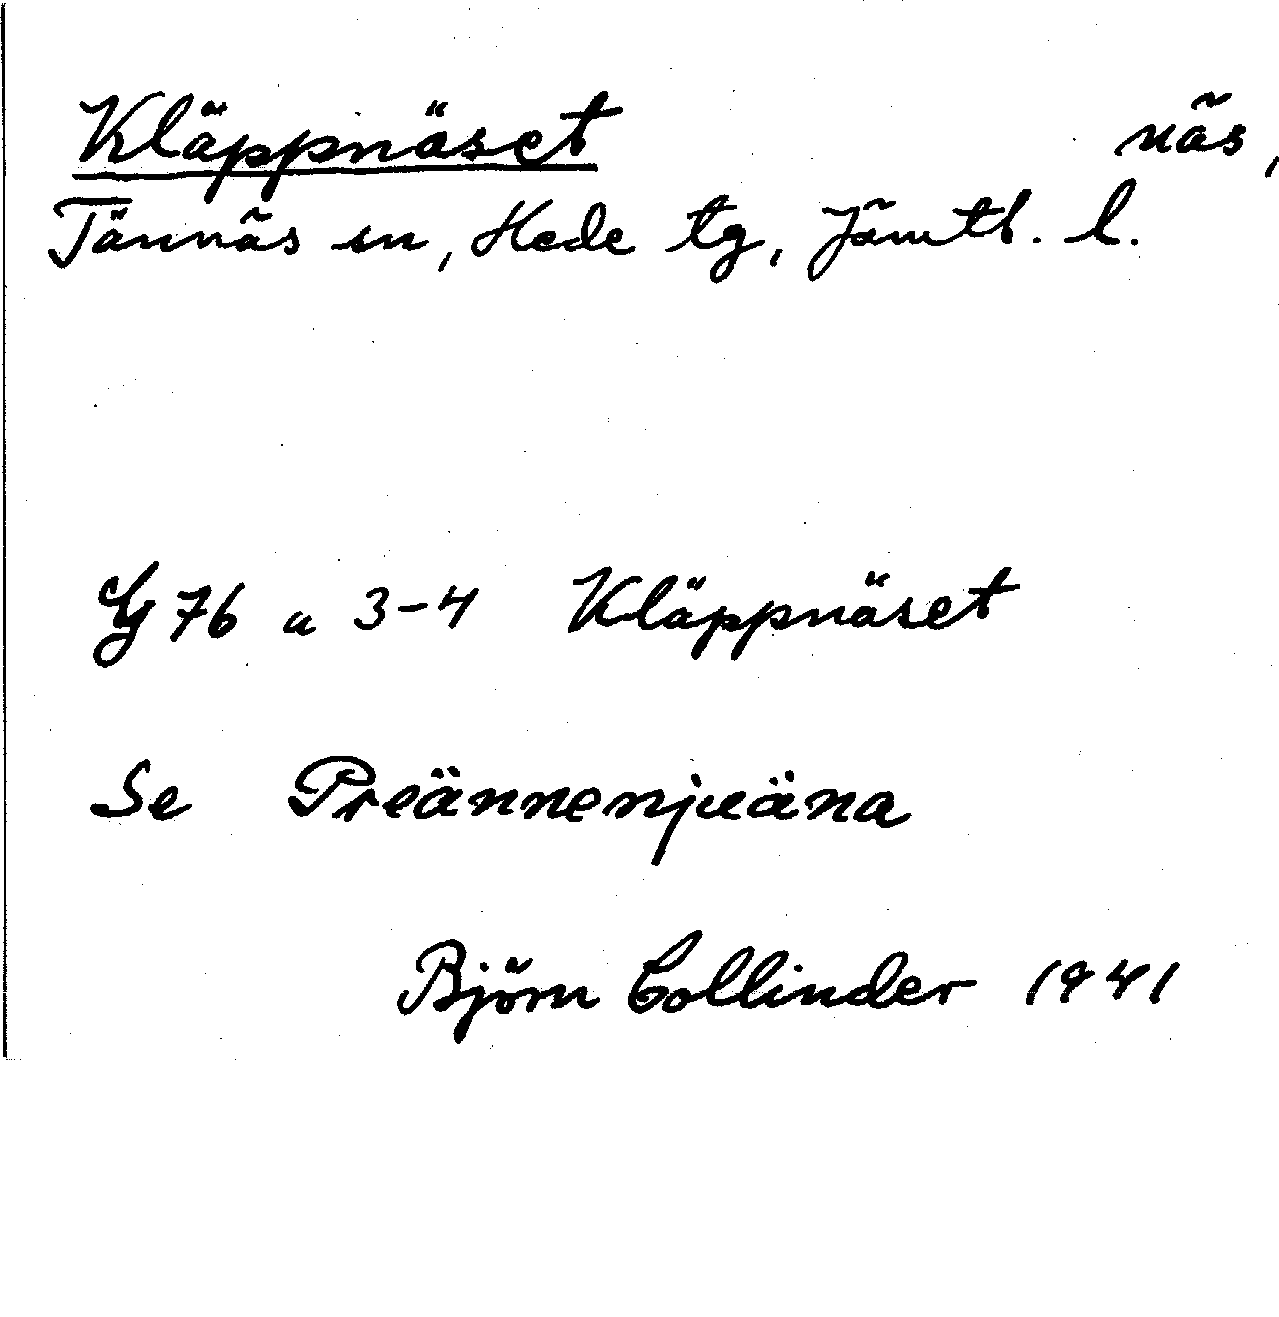 Kläppnäset näs,
Tännäs sn, Hede tg, Jämtl. l.
G 76 a 3-4 Kläppnäset
Se Preännenjueäna
Björn Collinder 1941